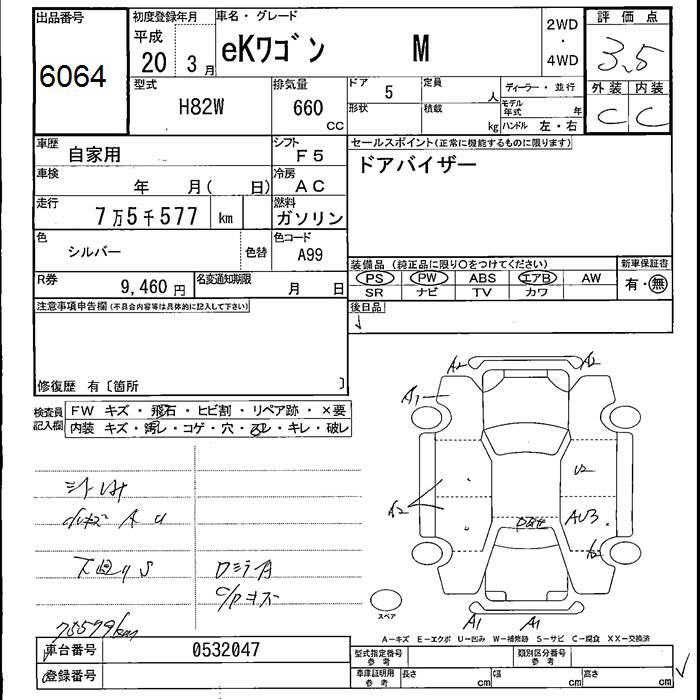 出品番号
6064
初度登録年月
平成
20 3月
車名・グレード
eKワゴン M
2WD
・
4WD
評価点
3.5
外装 内装
C C
型式
H82W
排気量
660
cc
ドア
5
定員
人
形状
積載
kg
ディーラー・並行
モデル年式
年
ハンドル 左・右
車歴
自家用
シフト
F5
車検
年 月( 日)
冷房
AC
走行
7万5千577 km
燃料
ガソリン
色
シルバー
色替
色コード
A99
R券
9,460円
名変通知期限
月 日
セールスポイント(正常に機能するものに限ります)
ドアバイザー
装備品(純正品に限り○をつけてください)
PS PW ABS エアB AW
SR ナビ TV カワ
新車保証書
有・無
後日品
注意事項申告欄(不具合内容等は具体的に記入して下さい)
修復歴 有〔箇所 〕
検査員記入欄
FW キズ・飛石・ヒビ割・リペア跡・×要
内装 キズ・汚レ・コゲ・穴・スレ・キレ・破レ
A2 A2
A1
A2
U2
AU3
A2
A1 A1
A U
S
75579km
スペア
A-キズ E-エクボ U-凹み W-補修跡 S-サビ C-腐食 XX-交換済
車台番号
0532047
登録番号
型式指定番号
参考
類別区分番号
参考
車庫証明用
参考
長さ cm 幅 cm 高さ cm